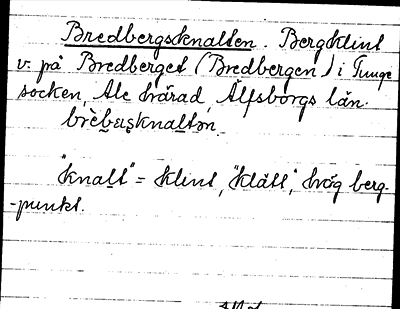 Bredbergsknalten. Bergklint
v. på Bredberget (Bredbergen) i Tunge
socken, Ale härad, Älfsborgs län.
"knalt" = klint, "klätt", hög berg-
-punkt.